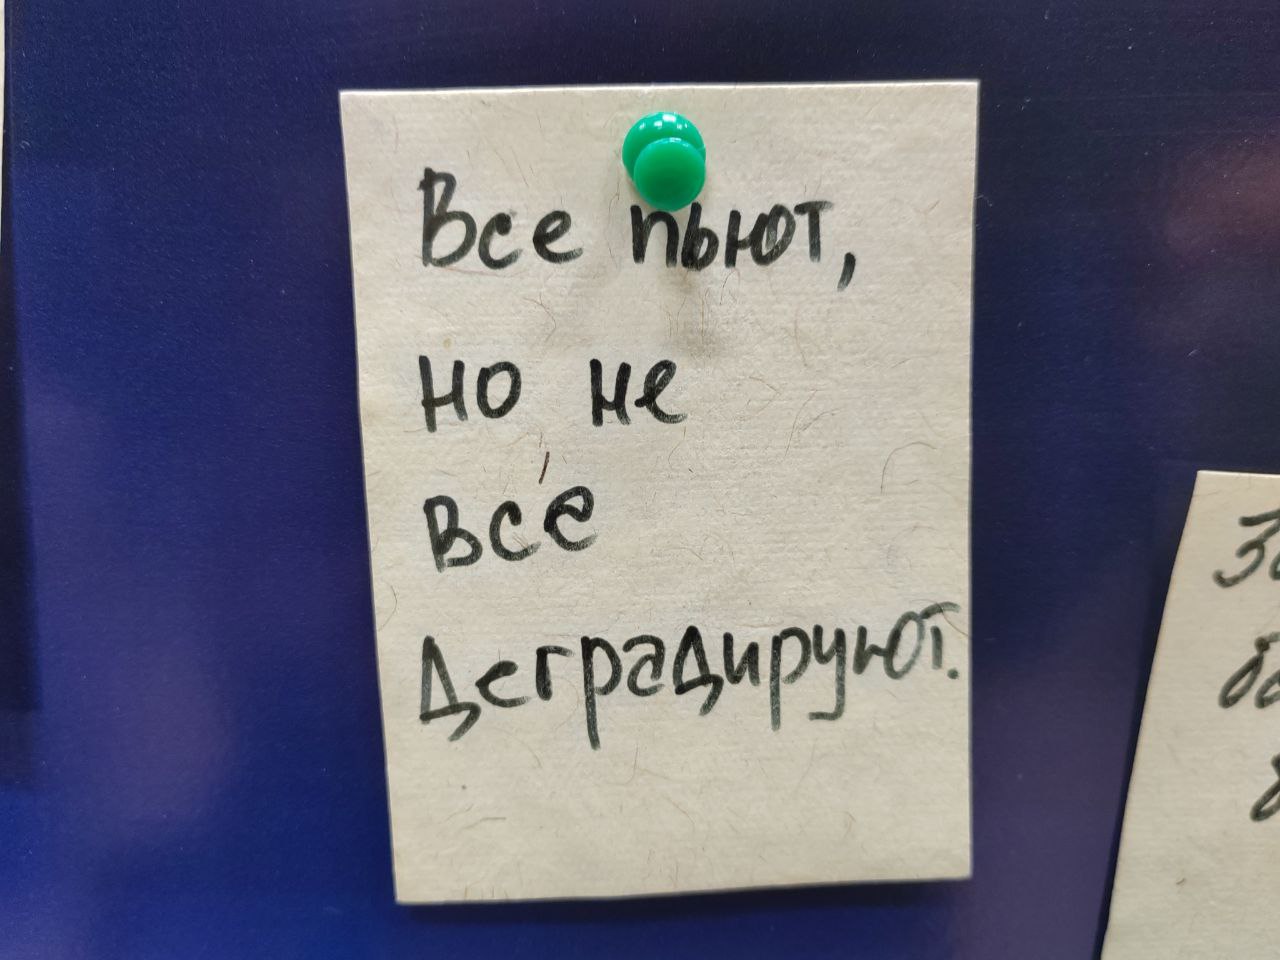 Все пьют,
но не
все
деградируют.